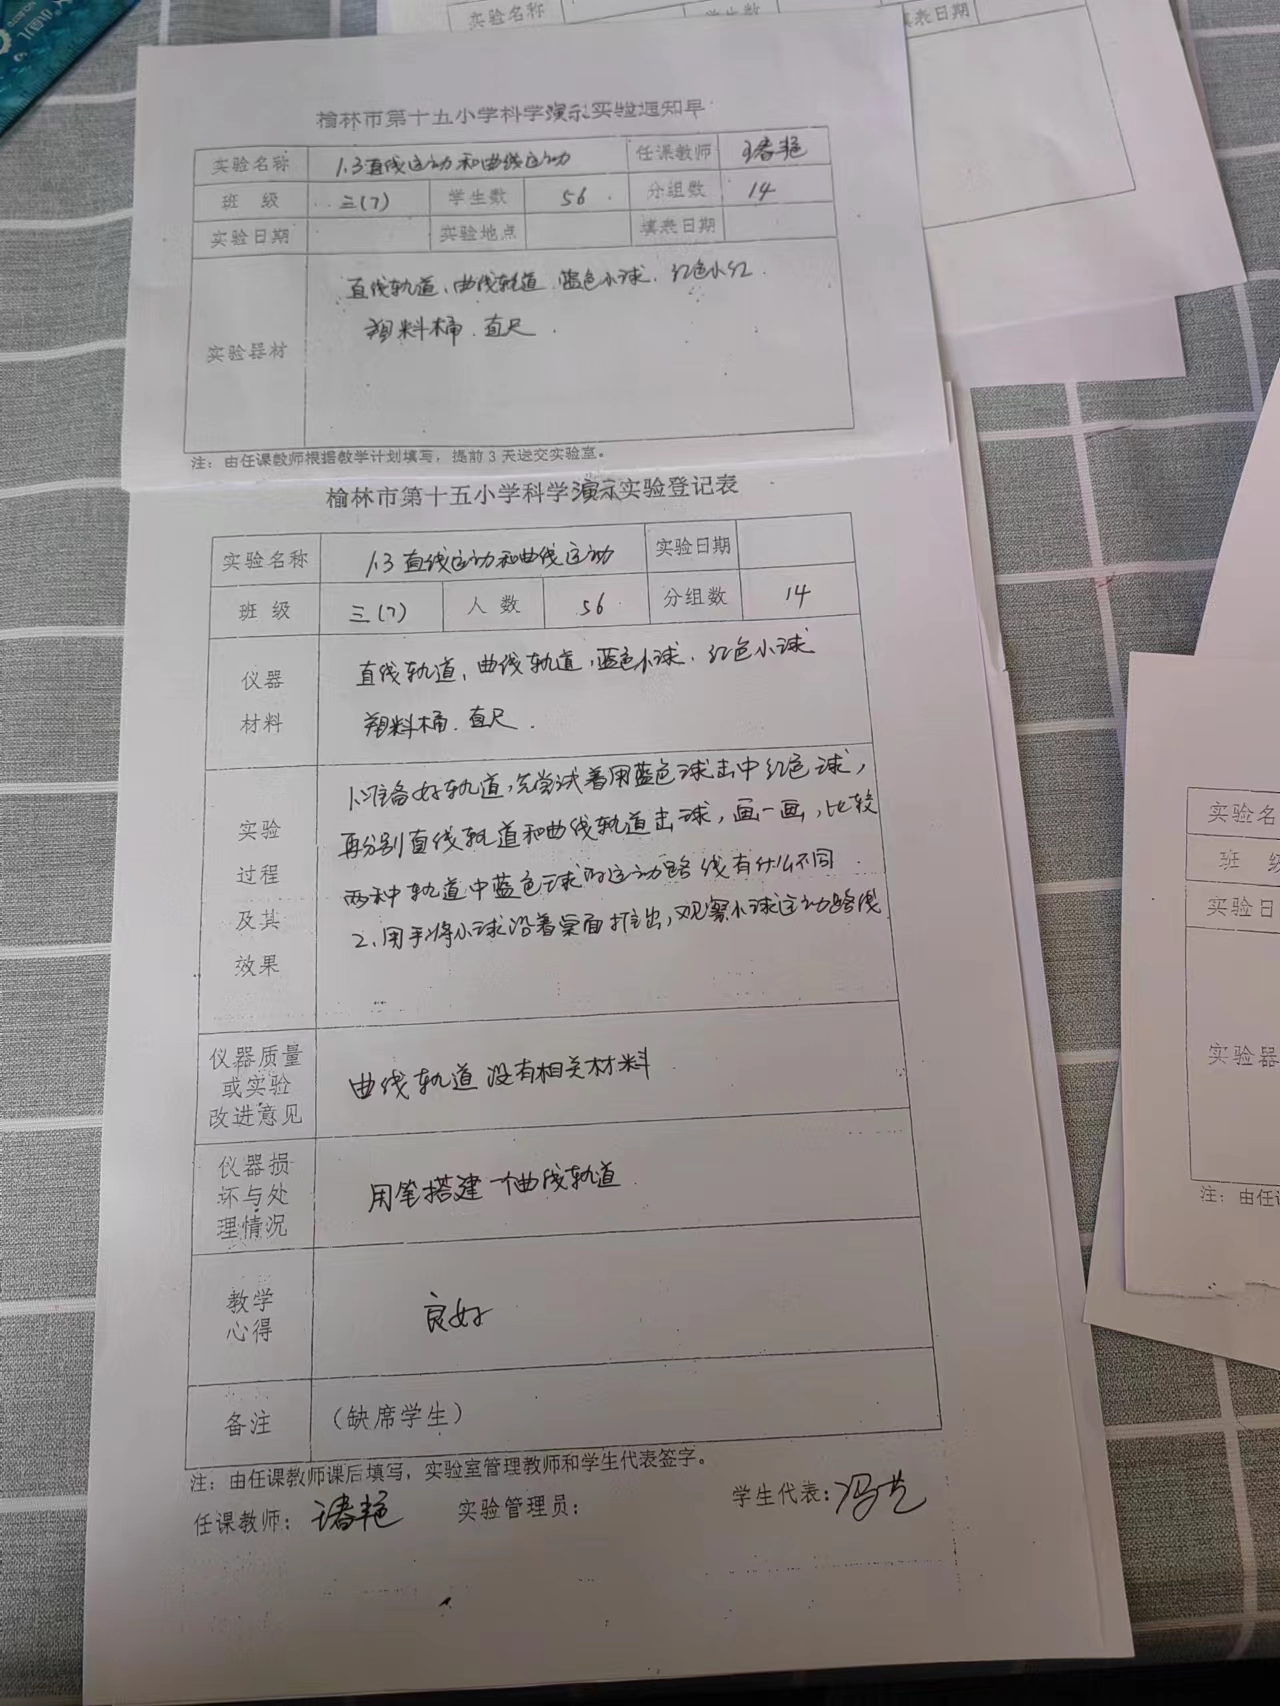 实验名称
表日期
榆林市第十五小学科学演示实验通知单
实验名称 1.3直线运动和曲线运动 任课教师
班 级 三(7) 学生数 56 分组数 14
实验日期 实验地点 填表日期
实验器材
直线轨道、曲线轨道、蓝色小球、红色小红
塑料桶、直尺.
注：由任课教师根据教学计划填写，提前3天送交实验室。
榆林市第十五小学科学演示实验登记表
实验名称 1.3直线运动和曲线运动 实验日期
班 级 三(7) 人 数 56 分组数 14
仪器
材料
直线轨道、曲线轨道，蓝色小球、红色小球
塑料桶、直尺.
实验
过程
及其
效果
1.准备好轨道，先尝试着用蓝色球击中红色球，
再分别直线轨道和曲线轨道击球，画一画，比较
两种轨道中蓝色球的运动路线有什么不同.
2、用手将小球沿着桌面推出，观察小球运动路线
仪器质量
或实验
改进意见
曲线轨道没有相关材料
仪器损
坏与处
理情况
用笔搭建一个曲线轨道
教学
心得
良好
备注 （缺席学生）
注：由任课教师课后填写，实验室管理教师和学生代表签字。
任课教师： 实验管理员： 学生代表：
实验名
班 级
实验日
实验器
注：由任